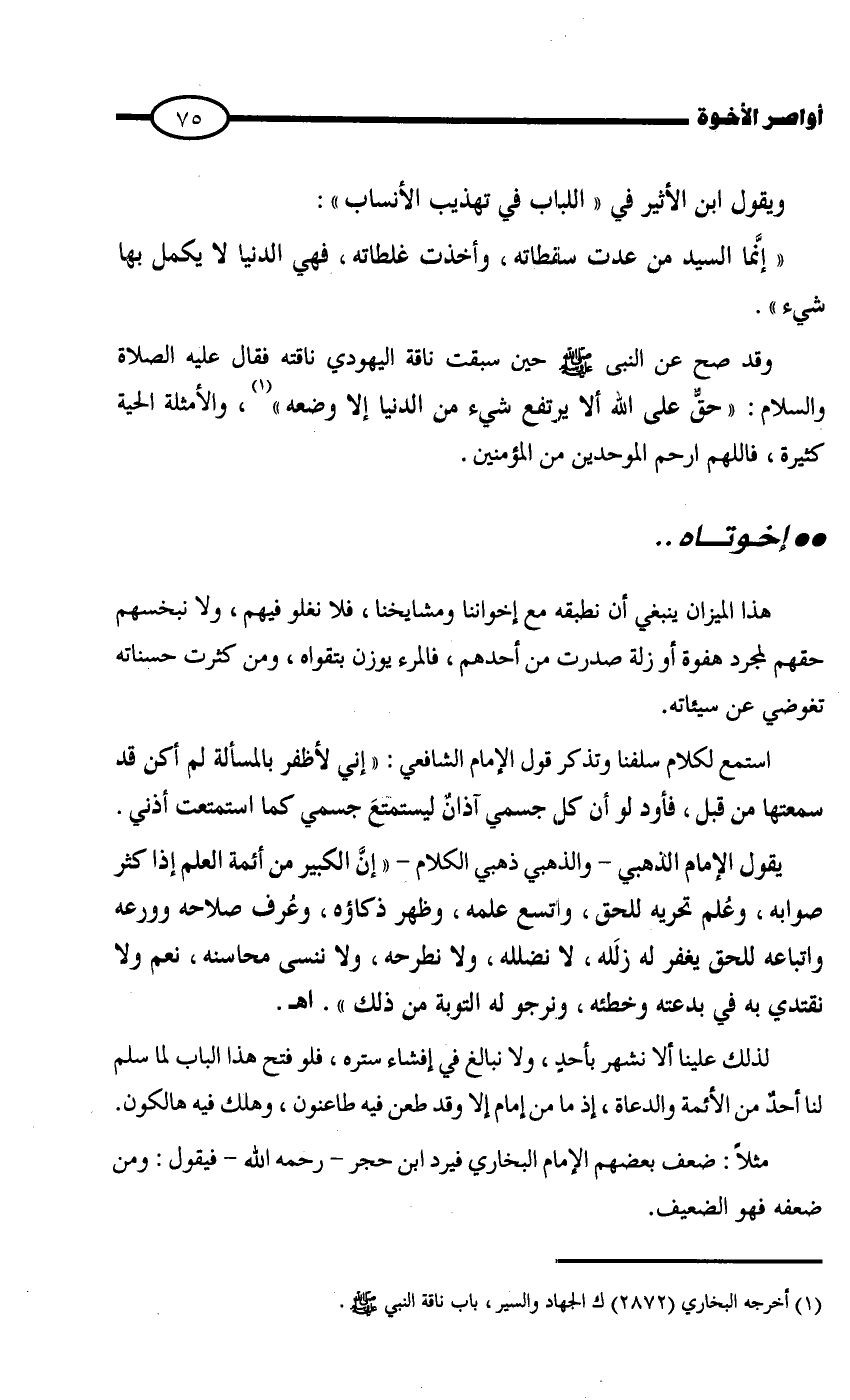 أواصر الأخوة
٧٥
ويقول ابن الأثير في « اللباب في تهذيب الأنساب » :
« إنَّما السيد من عدت سقطاته ، وأخذت غلطاته ، فهي الدنيا لا يكمل بها
شيء » .
وقد صح عن النبى ﷺ حين سبقت ناقة اليهودي ناقته فقال عليه الصلاة
والسلام : « حقٌّ على الله ألا يرتفع شيء من الدنيا إلا وضعه »(١) ، والأمثلة الحية
كثيرة ، فاللهم ارحم الموحدين من المؤمنين .
●● إخـوتـــاه ..
هذا الميزان ينبغي أن نطبقه مع إخواننا ومشايخنا ، فلا نغلو فيهم ، ولا نبخسهم
حقهم لمجرد هفوة أو زلة صدرت من أحدهم ، فالمرء يوزن بتقواه ، ومن كثرت حسناته
تغوضي عن سيئاته.
استمع لكلام سلفنا وتذكر قول الإمام الشافعي : « إني لأظفر بالمسألة لم أكن قد
سمعتها من قبل ، فأود لو أن كل جسمي آذانٌ ليستمتعَ جسمي كما استمتعت أذني .
يقول الإمام الذهبي – والذهبي ذهبي الكلام – « إنَّ الكبير من أئمة العلم إذا كثر
صوابه ، وعُلم تحريه للحق ، واتسع علمه ، وظهر ذكاؤه ، وعُرف صلاحه وورعه
واتباعه للحق يغفر له زلَله ، لا نضلله ، ولا نطرحه ، ولا ننسى محاسنه ، نعم ولا
نقتدي به في بدعته وخطئه ، ونرجو له التوبة من ذلك » . اهـ .
لذلك علينا ألا نشهر بأحدٍ ، ولا نبالغ في إفشاء ستره ، فلو فتح هذا الباب لما سلم
لنا أحدٌ من الأئمة والدعاة ، إذ ما من إمام إلا وقد طعن فيه طاعنون ، وهلك فيه هالكون.
مثلاً : ضعف بعضهم الإمام البخاري فيرد ابن حجر – رحمه الله – فيقول : ومن
ضعفه فهو الضعيف.
(١) أخرجه البخاري (٢٨٧٢) ك الجهاد والسير ، باب ناقة النبي ﷺ .